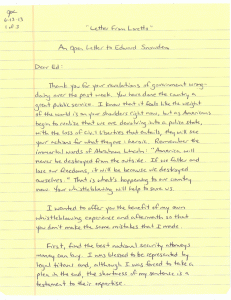 6-13-13
1 of 3
"Letter from Loretto"
An Open Letter to Edward Snowden
Dear Ed:
Thank you for your revelations of government wrong-
doing over the past week. You have done the country a
great public service. I know that it feels like the weight
of the world is on your shoulders right now, but as Americans
begin to realize that we are devolving into a police state,
with the loss of civil liberties that entails, they will see
your actions for what they are: heroic. Remember the
immortal words of Abraham Lincoln: "America will
never be destroyed from the outside. If we falter and
lose our freedoms, it will be because we destroyed
ourselves." That is what's happening to our country
now. Your whistleblowing will help to save us.
I wanted to offer you the benefit of my own
whistleblowing experience and aftermath so that
you don't make the same mistakes that I made.
First, find the best national security attorneys
money can buy. I was blessed to be represented by
legal titans and, although I was forced to take a
plea in the end, the shortness of my sentence is a
testament to their expertise.